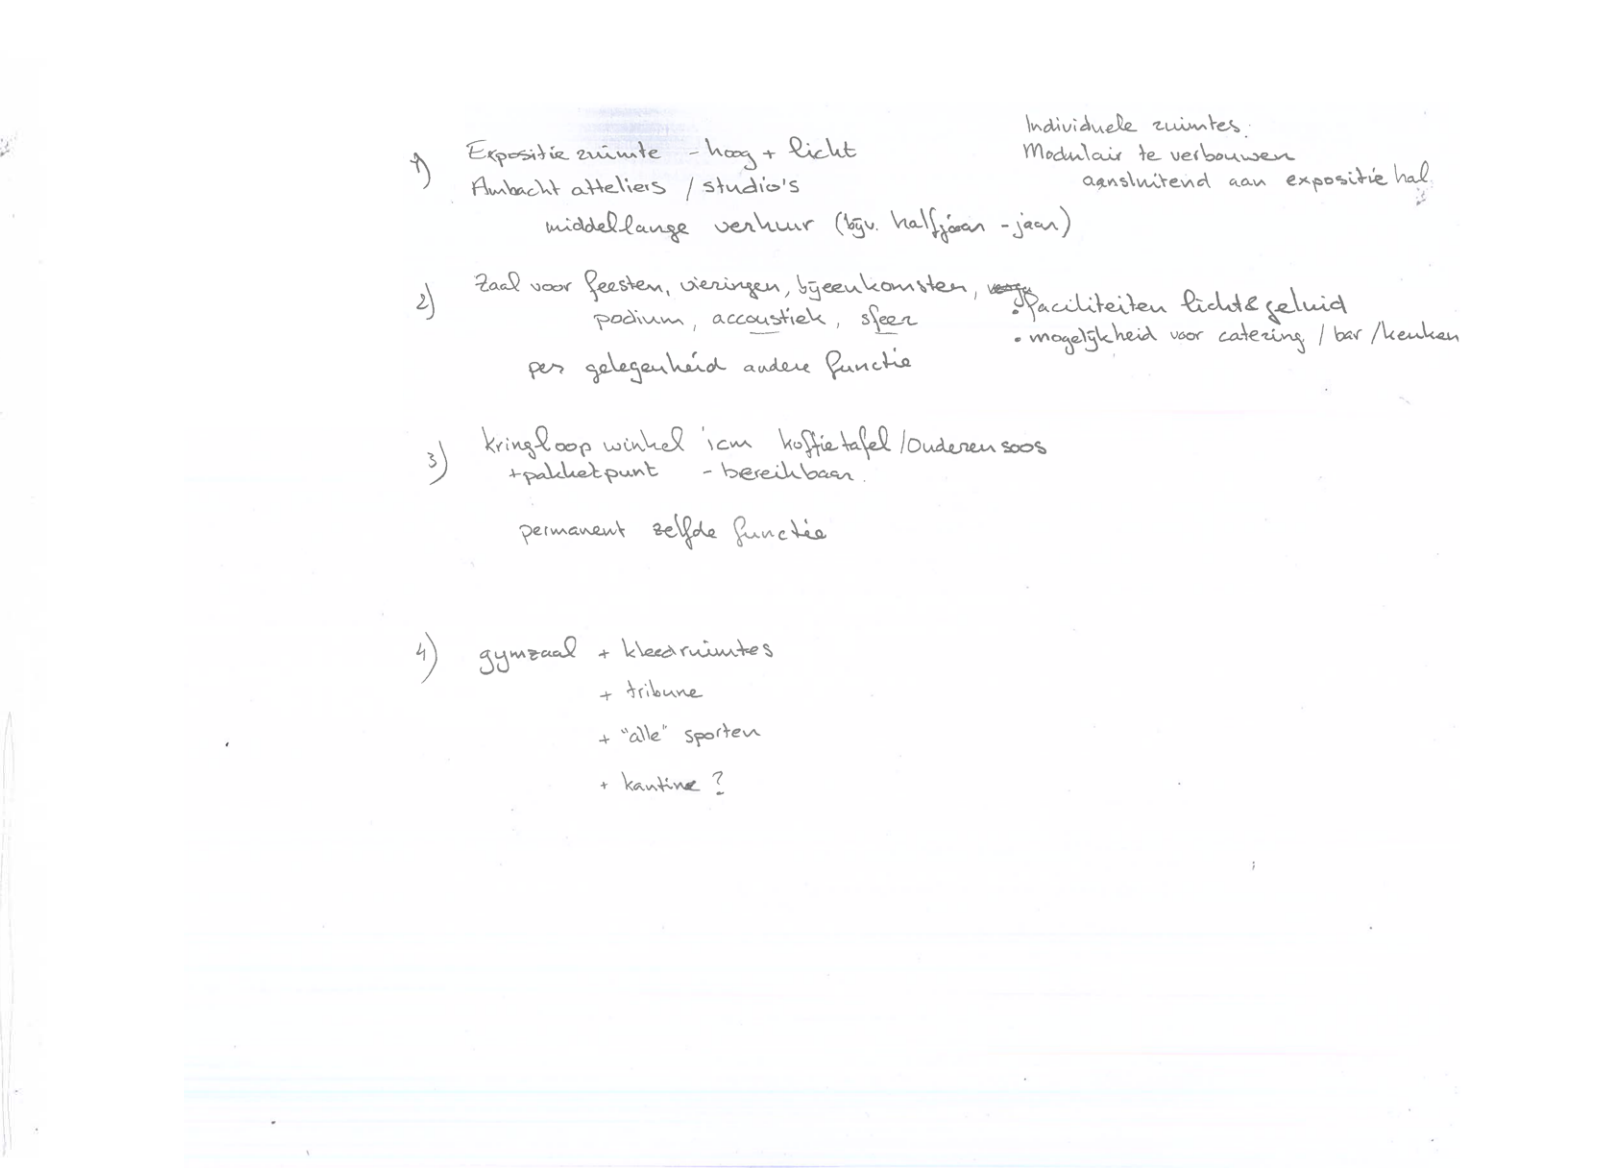 1) Expositie ruimte - hoog + licht
Ambacht atteliers / studio's
middellange verhuur (bijv. halfjaar - jaar)
Individuele ruimtes.
Modulair te verbouwen
aansluitend aan expositie hal
2) Zaal voor feesten, vieringen, bijeenkomsten,
podium, accoustiek, sfeer
per gelegenheid andere functie
• faciliteiten licht & geluid
• mogelijkheid voor catering / bar / keuken
3) kringloop winkel icm koffietafel / Ouderen soos
+ pakketpunt - bereikbaar.
permanent zelfde functie
4) gymzaal + kleedruimtes
+ tribune
+ "alle" sporten
+ kantine ?